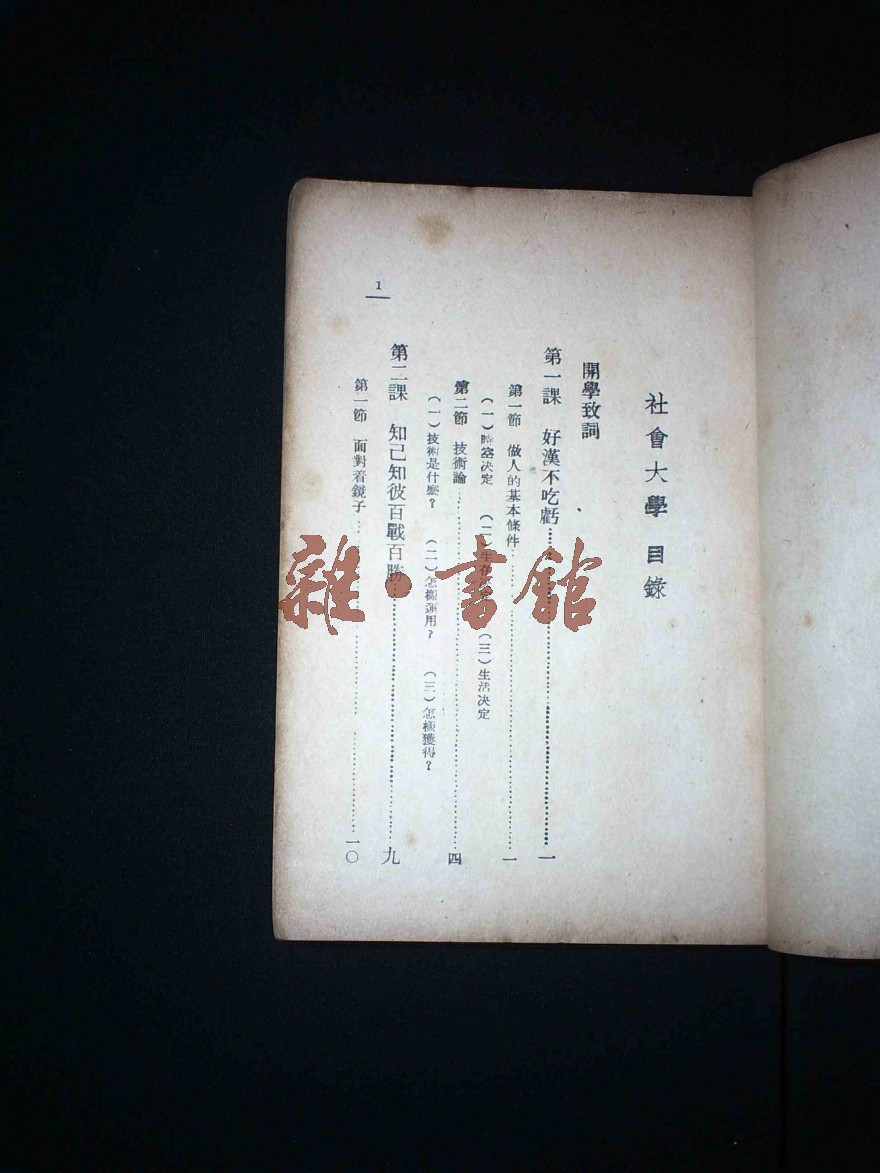 社會大學 目錄
開學致詞
第一課 好漢不吃虧……一
第一節 做人的基本條件……一
(一)時空決定 (二)生存決定 (三)生活決定
第二節 技術論……四
(一)技術是什麼? (二)怎樣運用? (三)怎樣獲得?
第二課 知己知彼百戰百勝……九
第一節 面對着鏡子……一〇
1
雜·書館